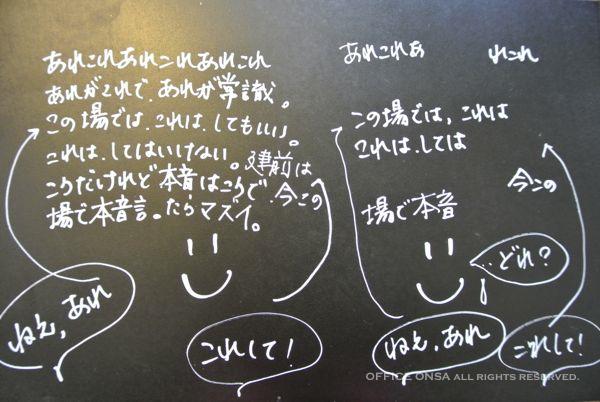 あれこれあれこれあれこれ
あれがこれで、あれが常識。
この場では、これは、してもいい。
これは、してはいけない。建前は
こうだけれど本音はこうで、今この
場で本音言ったらマズイ。
ねぇ、あれ
これして!
あれこれあ れこれ
この場では、これは
これは、しては
今この
場で本音
…どれ?
ねぇ、あれ
これして!
OFFICE ONSA ALL RIGHTS RESERVED.